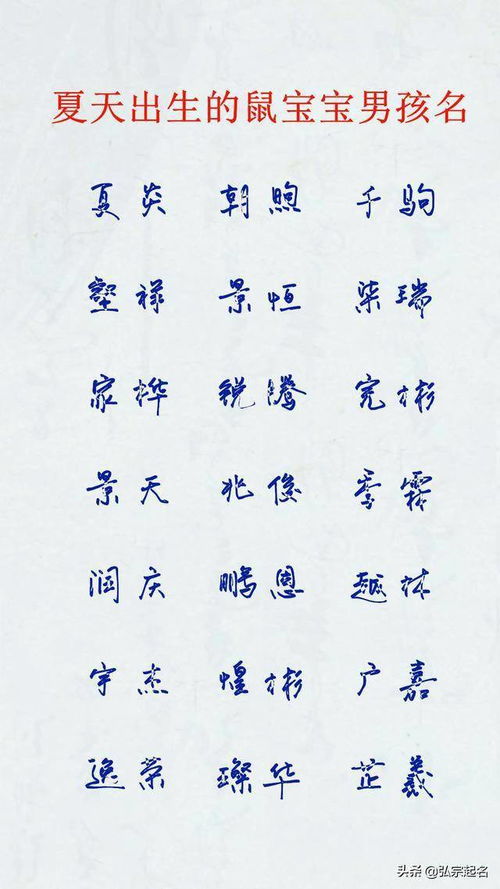 夏天出生的鼠宝宝男孩名
夏炎 朝煦 千驹
壑禄 景恒 柒瑞
家桦 锐腾 宪彬
景天 兆俊 雪霖
润庆 鹏恩 越林
宇杰 煌彬 广嘉
逸荣 璨华 芷羲
头条@弘宗起名